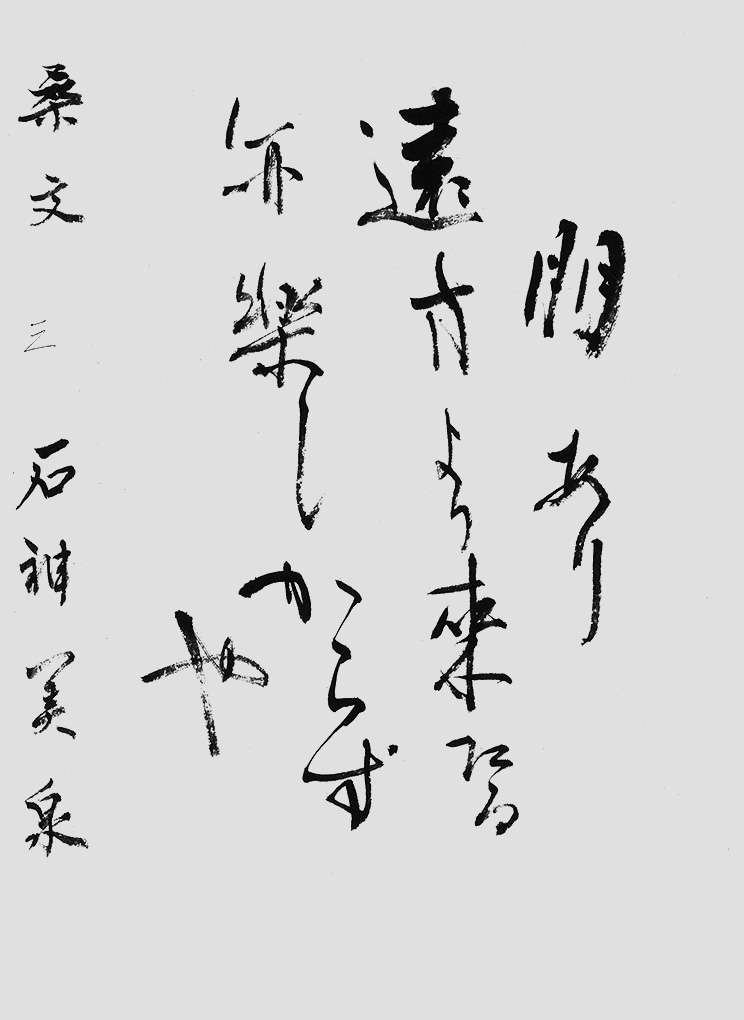 朋あり
遠方より來留
亦樂しからずや
桑文 三 石神美泉